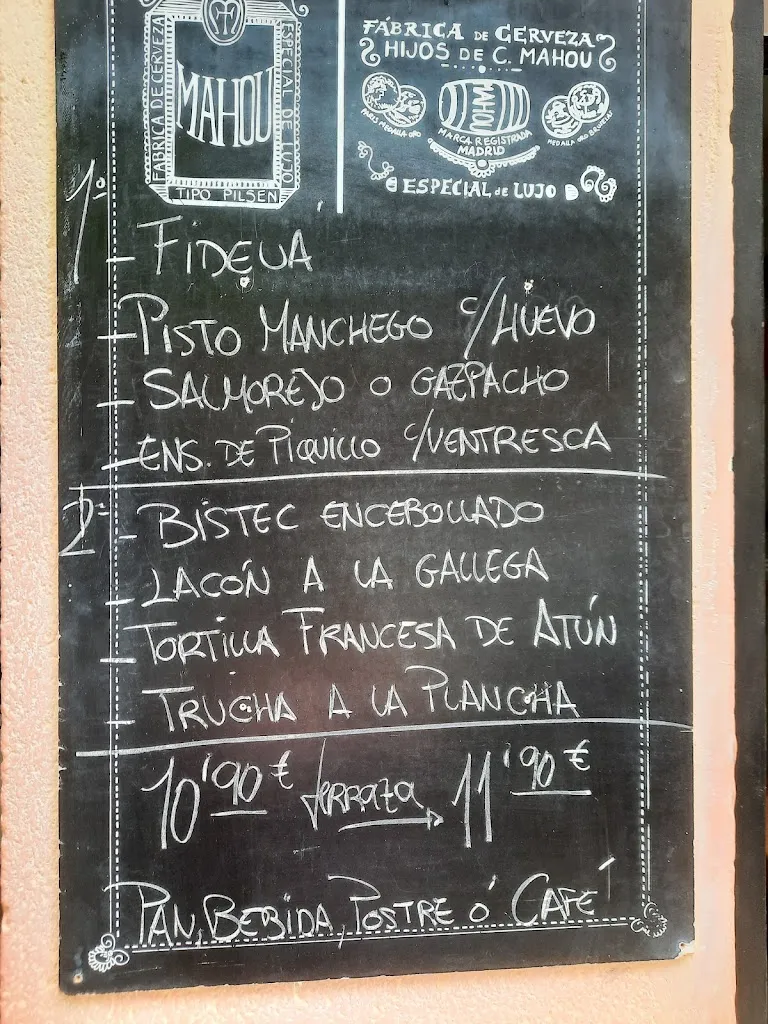 FÁBRICA DE CERVEZA
MAHOU
ESPECIAL DE LUJO
TIPO PILSEN
FÁBRICA DE CERVEZA
HIJOS DE C. MAHOU
PARIS MEDALLA ORO
MAHOU
MEDALLA ORO BRUSELAS
MARCA REGISTRADA
MADRID
ESPECIAL DE LUJO
1º
- FIDEUA
- PISTO MANCHEGO C/HUEVO
- SALMOREJO O GAZPACHO
- ENS. DE PIQUILLO C/VENTRESCA
2º
- BISTEC ENCEBOLLADO
- LACÓN A LA GALLEGA
- TORTILLA FRANCESA DE ATÚN
- TRUCHA A LA PLANCHA
10'90€ terraza → 11'90€
PAN, BEBIDA, POSTRE Ó CAFÉ